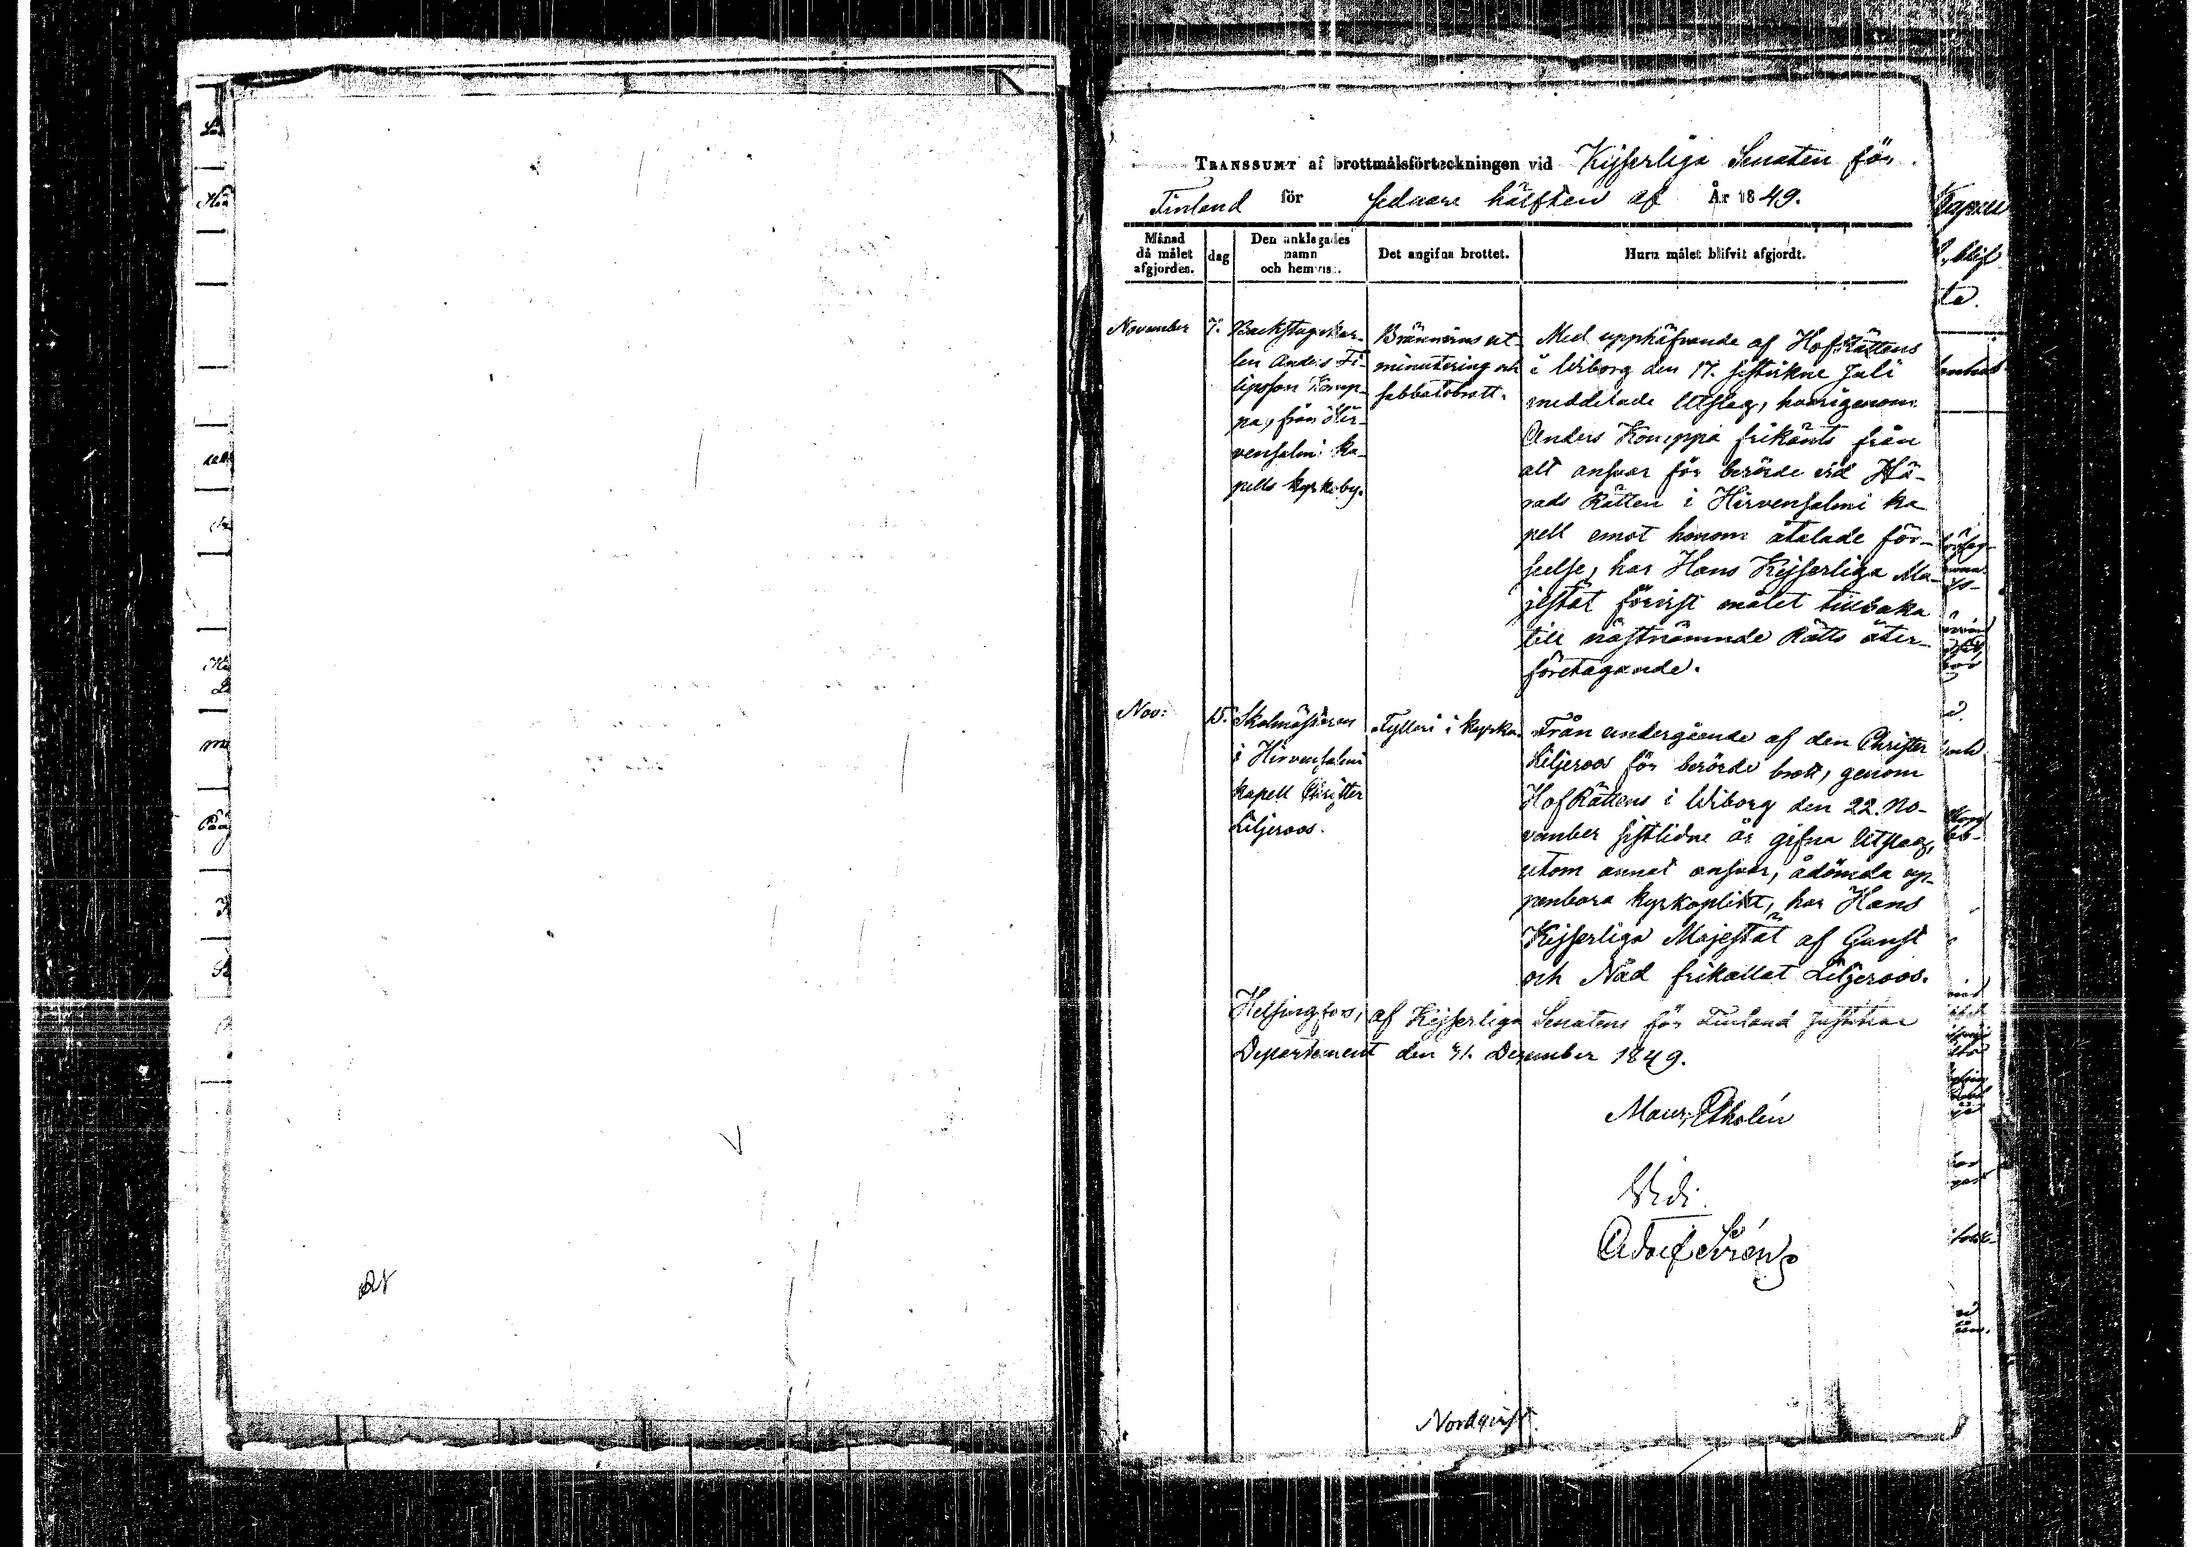 TRANSSUMT af brottmålsförteckningen vid Kejserliga Senaten för
Finland för sednare hälften af År 1849.
Månad då målet afgjordes.
dag
Den anklagades namn och hemvist.
Det angifna brottet.
Huru målet blifvit afgjordt.
November 7.
Backstugukar-
len Anders Fi-
lipsson Komp-
pa, från Hir-
vensalmi ka-
pells kyrkoby.
Bränvins ut-
minutering och
sabbatsbrott.
Med upphäfvande af HofRättens
i Wiborg den 17. sistvikne Juli
meddelade Utslag, hvarigenom
Anders Komppa frikänts från
alt ansvar för berörde vid Hä-
rads Rätten i Hirvensalmi ka
pell emot honom åtalade för-
seelse, har Hans Kejserliga Ma-
jestät förvist målet tillbaka
till nästnämnde Rätts åter-
företagande.
Nov: 15.
Skolmästaren
i Hirvensalmi
kapell Christer
Liljeroos.
Fylleri i kyrka.
Från undergående af den Christer
Liljeroos för berörde brott, genom
HofRättens i Wiborg den 22. No-
vember sistlidne år gifna Utslag,
utom annat ansvar, ådömda up-
penbara kyrkoplikt, har Hans
Kejserliga Majestät af Gunst
och Nåd frikallat Liljeroos.
Helsingfors, af Kejserliga Senatens för Finland Justitiae
Departement den 31. December 1849.
Maur. Etholén
Vidi.
Adolf
Nordqvist.